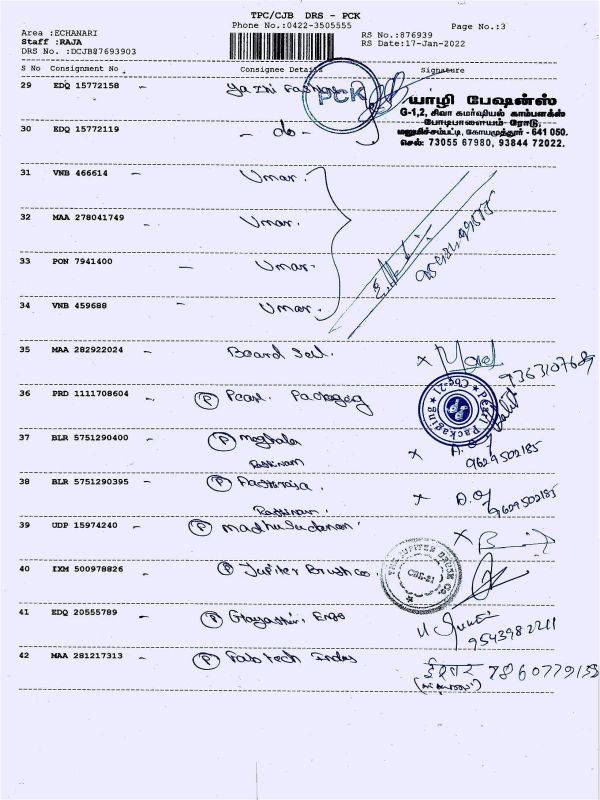 TPC/CJB DRS - PCK
Phone No.:0422-3505555
Page No.:3
Area :ECHANARI
Staff :RAJA
DRS No. :DCJB87693903
RS No.:876939
RS Date:17-Jan-2022
S No Consignment No Consignee Details Signature
29 EDQ 15772158 - Yazhi Fashions
PCK
யாழி பேஷன்ஸ்
G-1,2, சிவா கமர்ஷியல் காம்பளக்ஸ்
போடிபாளையம் ரோடு,
மலுமிச்சம்பட்டி, கோயமுத்தூர் - 641 050.
செல்: 73055 67980, 93844 72022.
30 EDQ 15772119 - do -
31 VNB 466614 - Umar.
32 MAA 278041749 - Umar.
33 PON 7941400 - Umar.
34 VNB 459688 - Umar.
35 MAA 282922024 - Board
9363107689
36 PRD 1111708604 - P Pearl Packaging
Pearl Packaging
Cbe-21
37 BLR 5751290400 - P
9629502185
38 BLR 5751290395 - P
9629502185
39 UDP 15974240 - P Madhusudanan
40 IXM 500978826 P Jupiter Brush Co.
THE JUPITER BRUSH CO.
CBE-21
41 EDQ 20555789 - P
9543982211
42 MAA 281217313 - P Fab tech Indus